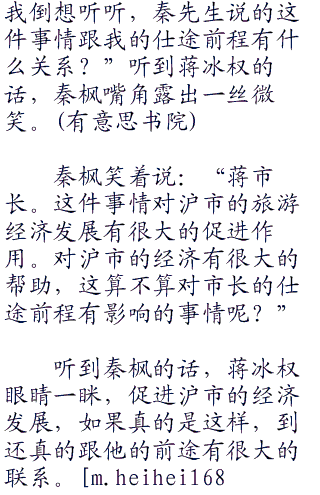 我倒想听听，秦先生说的这
件事情跟我的仕途前程有什
么关系？”听到蒋冰权的
话，秦枫嘴角露出一丝微
笑。(有意思书院)
秦枫笑着说：“蒋市
长。这件事情对沪市的旅游
经济发展有很大的促进作
用。对沪市的经济有很大的
帮助，这算不算对市长的仕
途前程有影响的事情呢？”
听到秦枫的话，蒋冰权
眼睛一眯，促进沪市的经济
发展，如果真的是这样，到
还真的跟他的前途有很大的
联系。[m.heihei168